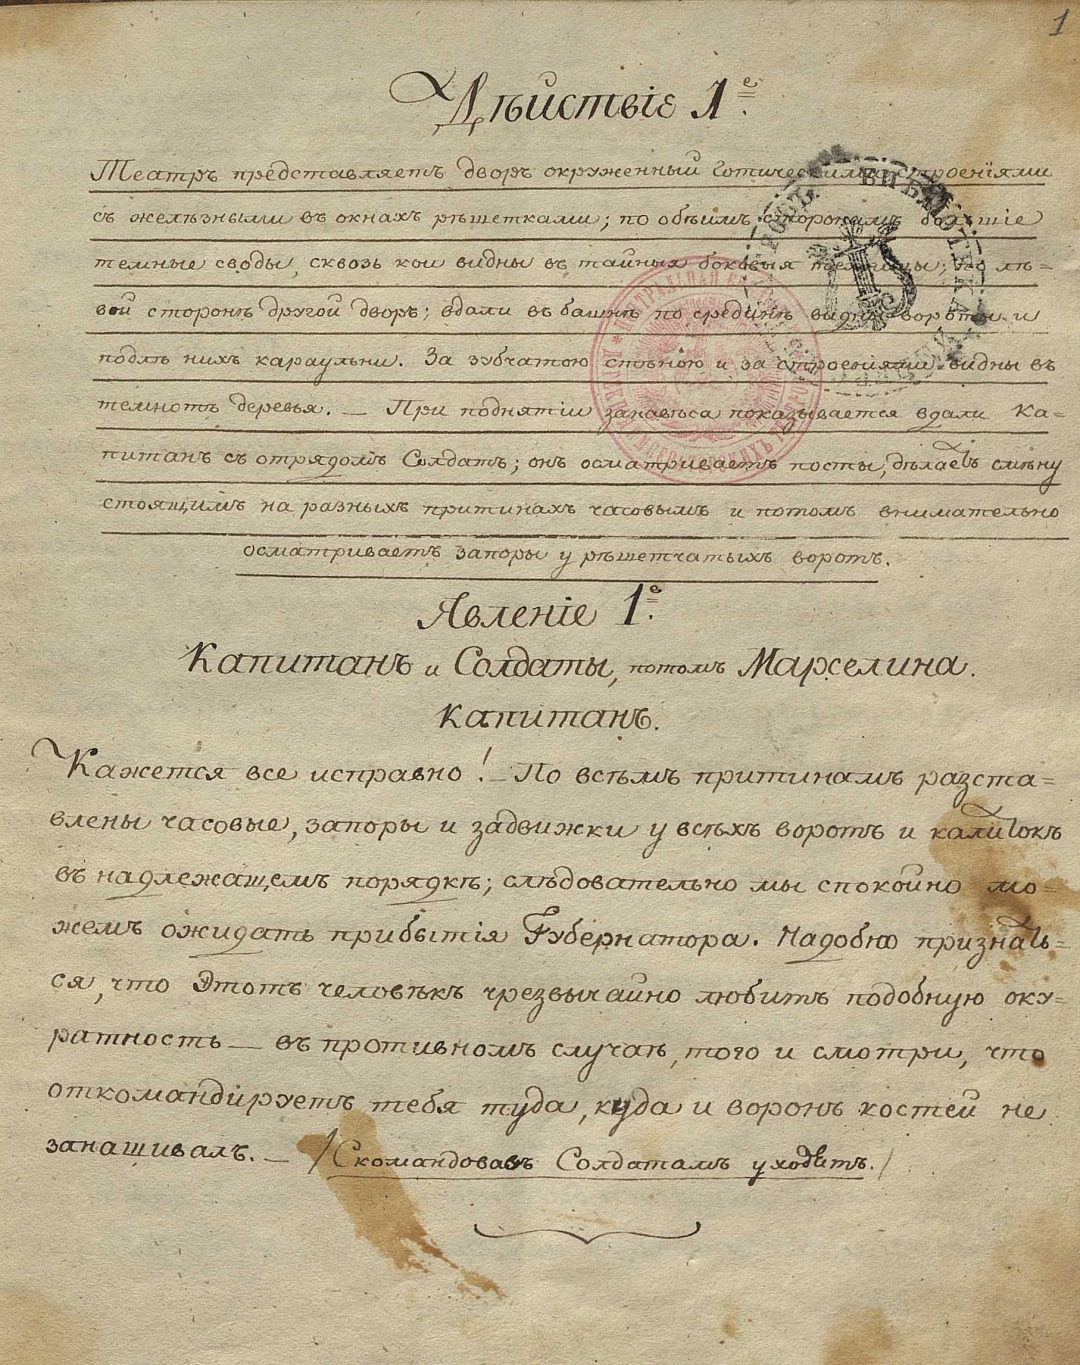 1
Дѣйствіе 1е.
Театръ представляетъ дворъ окруженный готическими строеніями
съ желѣзными въ окнахъ рѣшетками; по обѣимъ сторонамъ большіе
темные своды, сквозь кои видны въ тайныя боковыя темницы; по лѣ=
вой сторонѣ другой дворъ; вдали въ башнѣ по срединѣ видны вороты и
подлѣ нихъ караульни. За зубчатою стѣною и за строеніями видны въ
темнотѣ деревья. — При поднятіи занавѣса показывается вдали Ка=
питанъ съ отрядомъ Солдатъ; онъ осматриваетъ посты, дѣлаетъ смѣну
стоящимъ на разныхъ притинахъ часовымъ и потомъ внимательно
осматриваетъ запоры у рѣшетчатыхъ воротъ.
Явленіе 1е.
Капитанъ и Солдаты, потомъ Марселина.
Капитанъ.
Кажется все исправно! — По всѣмъ притинамъ разста=
влены часовые, запоры и задвижки у всѣхъ воротъ и калитокъ
въ надлежащемъ порядкѣ; слѣдовательно мы спокойно мо=
жемъ ожидать прибытія Губернатора. Надобно признать=
ся, что Этотъ человѣкъ чрезвычайно любитъ подобную оку=
ратность — въ противномъ случаѣ, того и смотри, что
откомандируетъ тебя туда, куда и воронъ костей не
занашивалъ. — /Скомандовавъ Солдатамъ уходитъ./